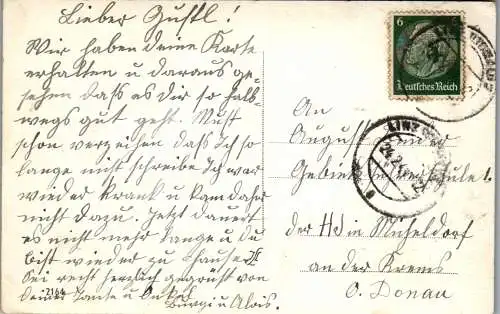 Lieber Gustl!
Wir haben deine Karte
erhalten u daraus ge-
sehen dass es dir so halb-
wegs gut geht. Must
schon verzeihen dass Ich so
lange nicht schreibe Ich war
wieder krank u kam daher
nicht dazu. Jetzt dauert
es nicht mehr lange u du
bist wieder zu Hause.
Sei recht herzlich gegrüßt von
deiner Tante u Onkel
Burgi u Alois.
2164
6
Deutsches Reich
LINZ
An
August
Gebiet
der HJ in Mühldorf
an der Krems
O. Donau